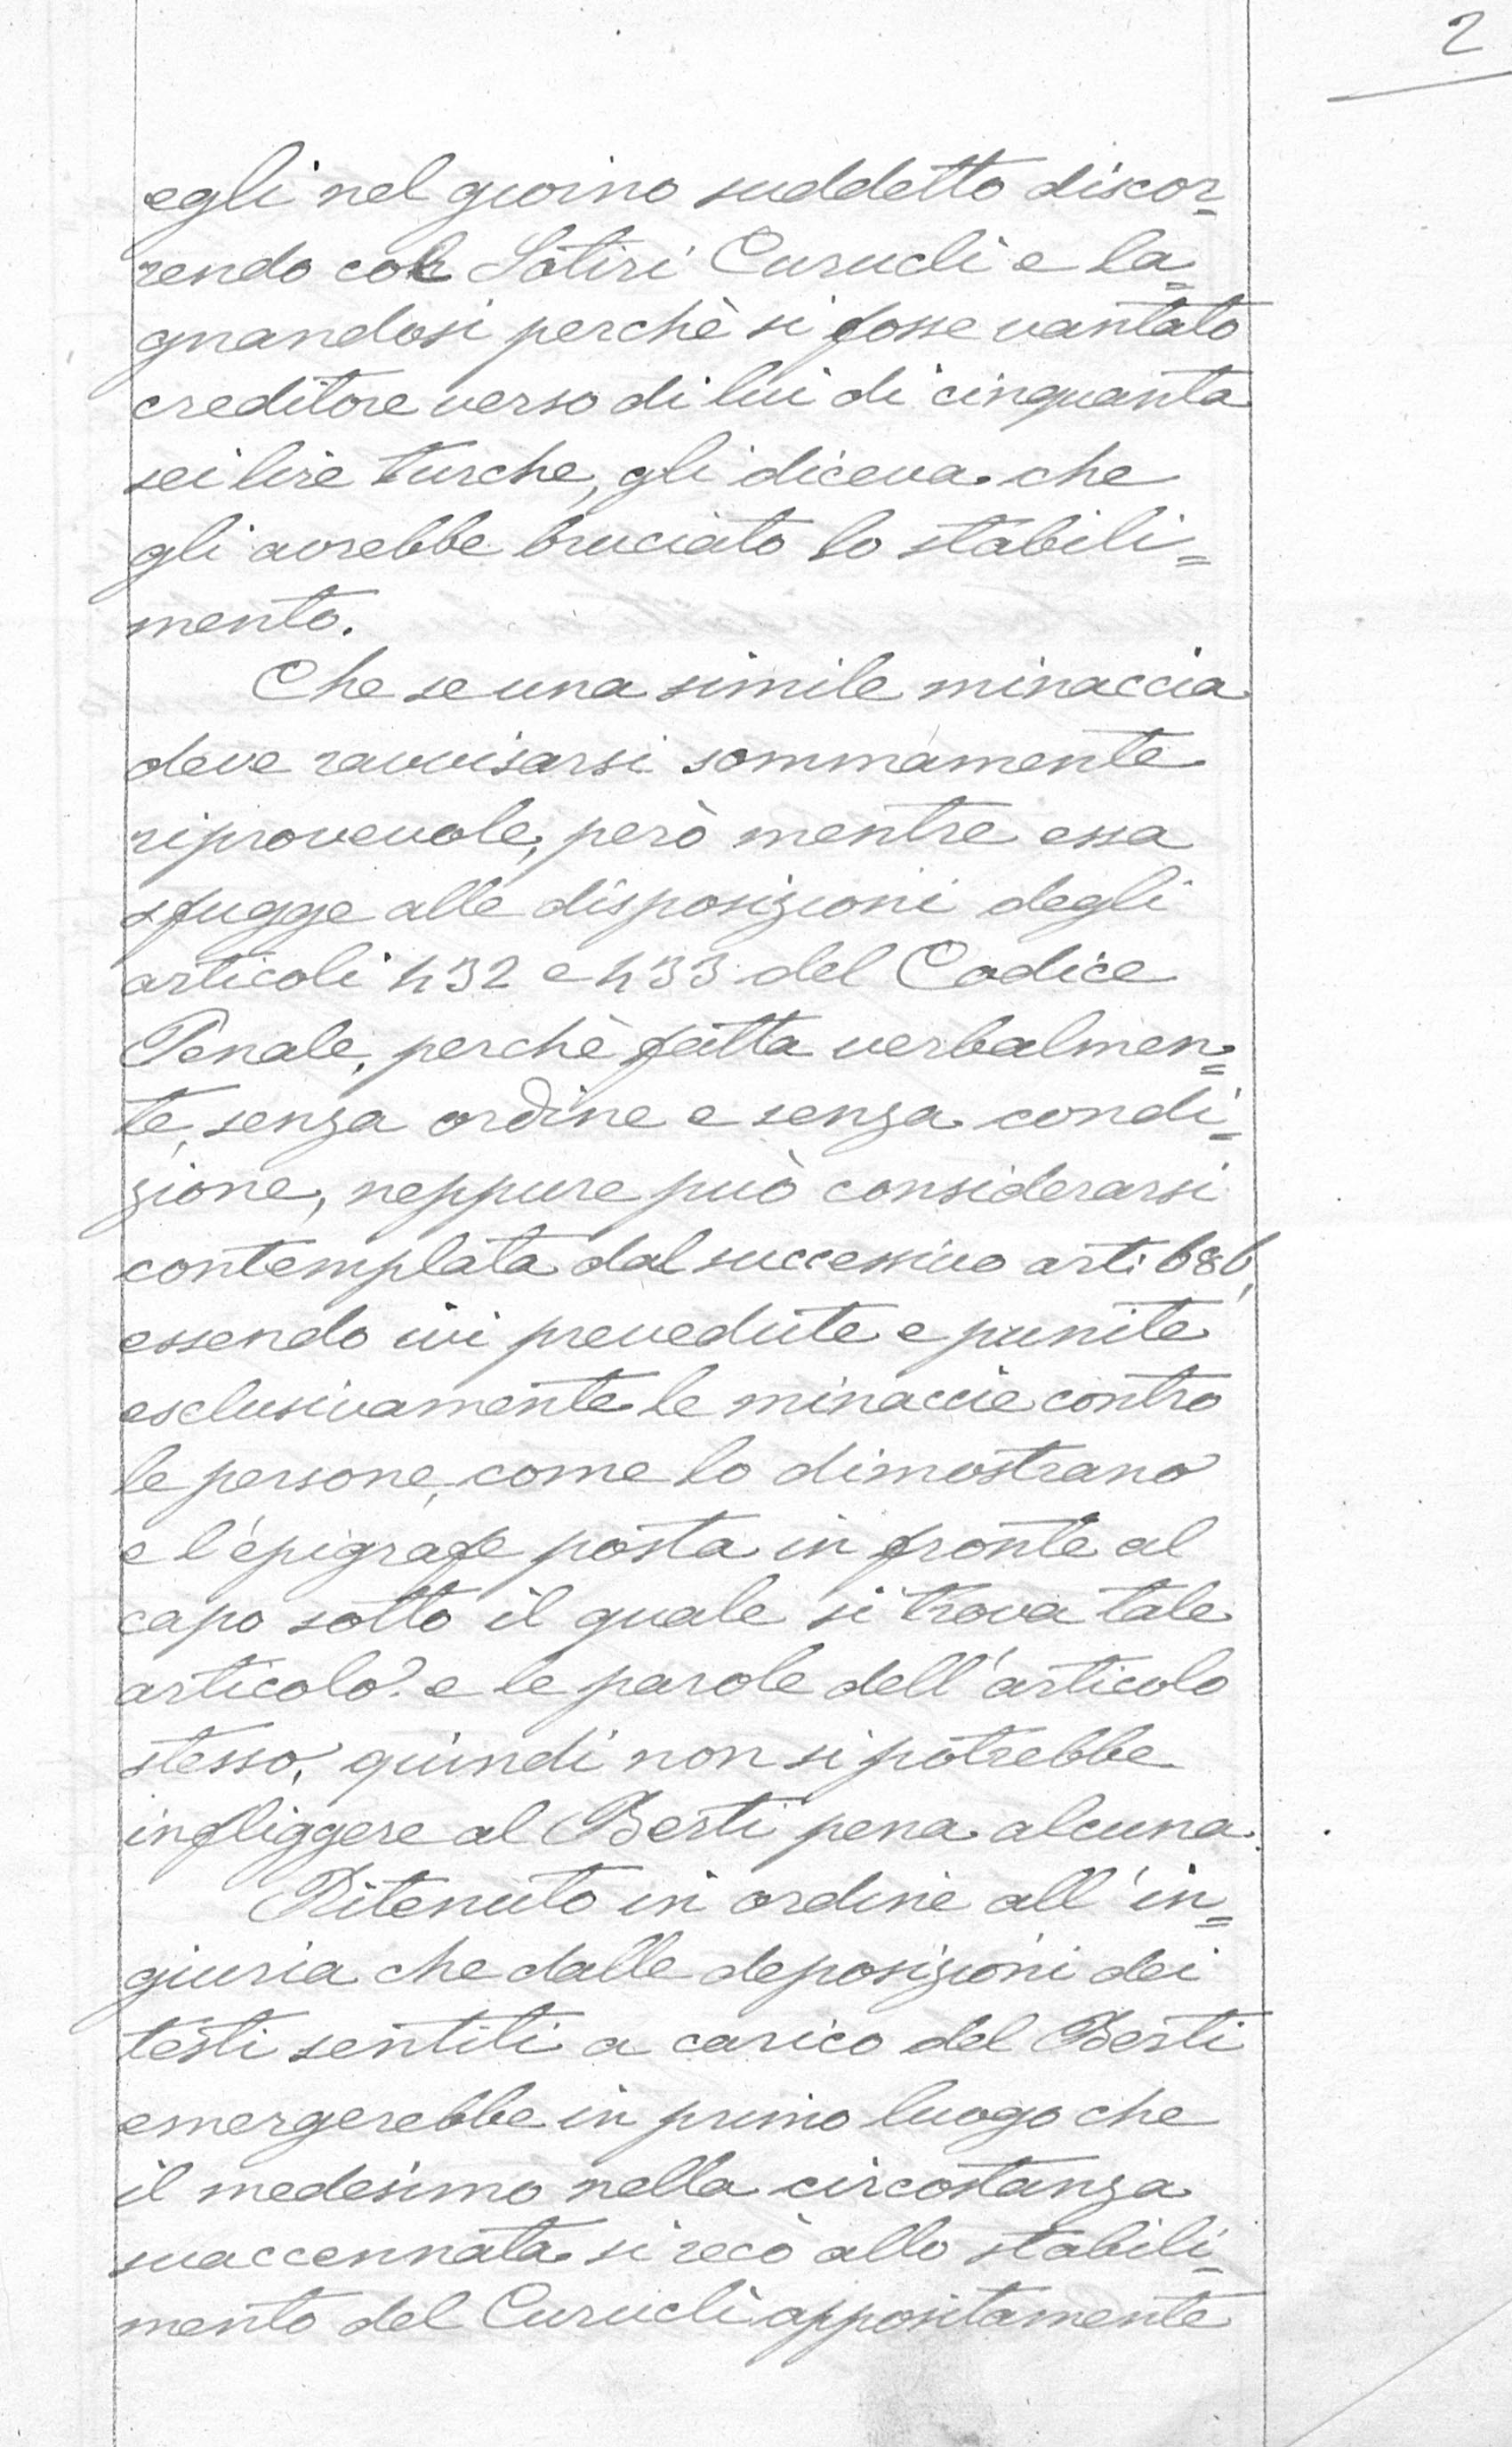 2
egli nel giorno suddetto discor=
rendo col Sotiri Curuclì e la=
gnandosi perchè si fosse vantato
creditore verso di lui di cinquanta
sei lire turche, gli diceva che
gli avrebbe bruciato lo stabili=
mento.
Che se una simile minaccia
deve ravvisarsi sommamente
riprovevole, però mentre essa
sfugge alle disposizioni degli
articoli 432 e 433 del Codice
Penale, perchè fatta verbalmen=
te, senza ordine e senza condi=
zione, neppure può considerarsi
contemplata dal successivo art: 686,
essendo ivi prevedute e punite
esclusivamente le minaccie contro
le persone, come lo dimostrano
e l'epigrafe posta in fronte al
capo sotto il quale si trova tale
articolo e le parole dell'articolo
stesso, quindi non si potrebbe
infliggere al Berti pena alcuna.
Ritenuto in ordine all'in=
giuria che dalle deposizioni dei
testi sentiti a carico del Berti
emergerebbe in primo luogo che
il medesimo nella circostanza
suaccennata si recò allo stabili=
mento del Curuclì appositamente